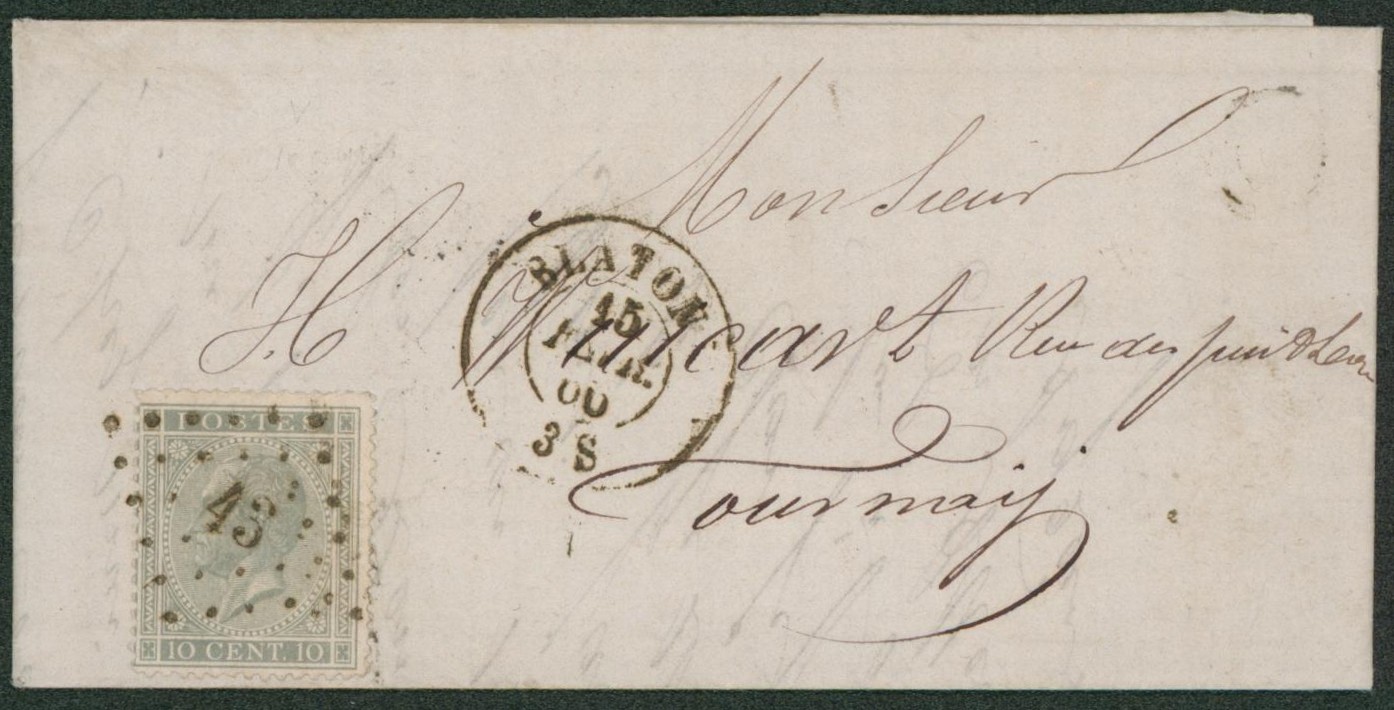 Monsieur
H Wilcart Rue des puits
Tournay
BLATON
15
FEVR.
60
3 S
POSTES
43
10 CENT. 10